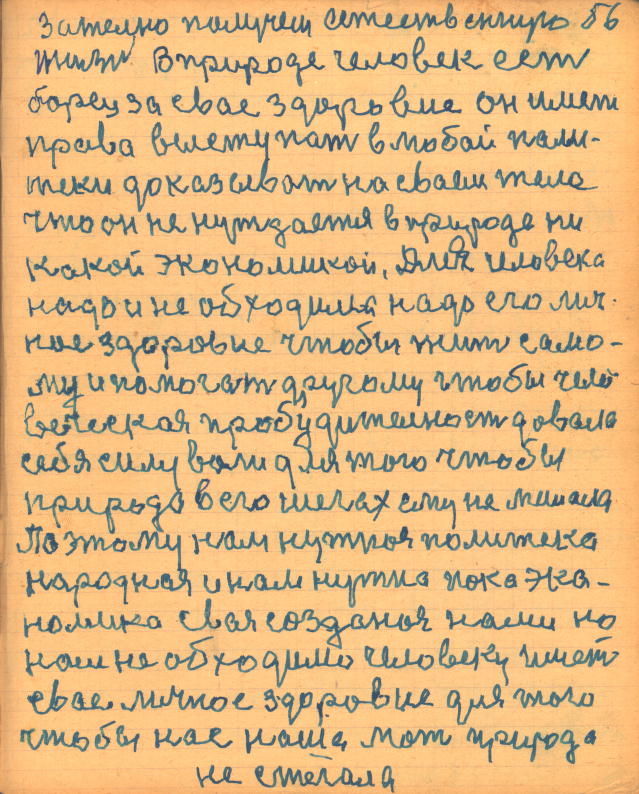 зателно получем естествєнную 56
жизн В природе человек ест
борец за свае здоровие он имет
права выступат в любой пали-
теки доказыват на сваем тела
что он не нуждается в природе ни
какой экономикой, Для человека
надо и не обходима надо его лич-
ное здоровие чтобы жит само-
му и помогат другому чтобы чело
веческая пробудителност довала
себя силу воли для того чтобы
природа в его шегах ему не мишала
Поэтому нам нужная политека
народная и нам нужна пока эка-
номика свая созданая нами но
нам не обходимо человеку имет
свае личное здоровие для того
чтобы нас наша мат природа
не стегала